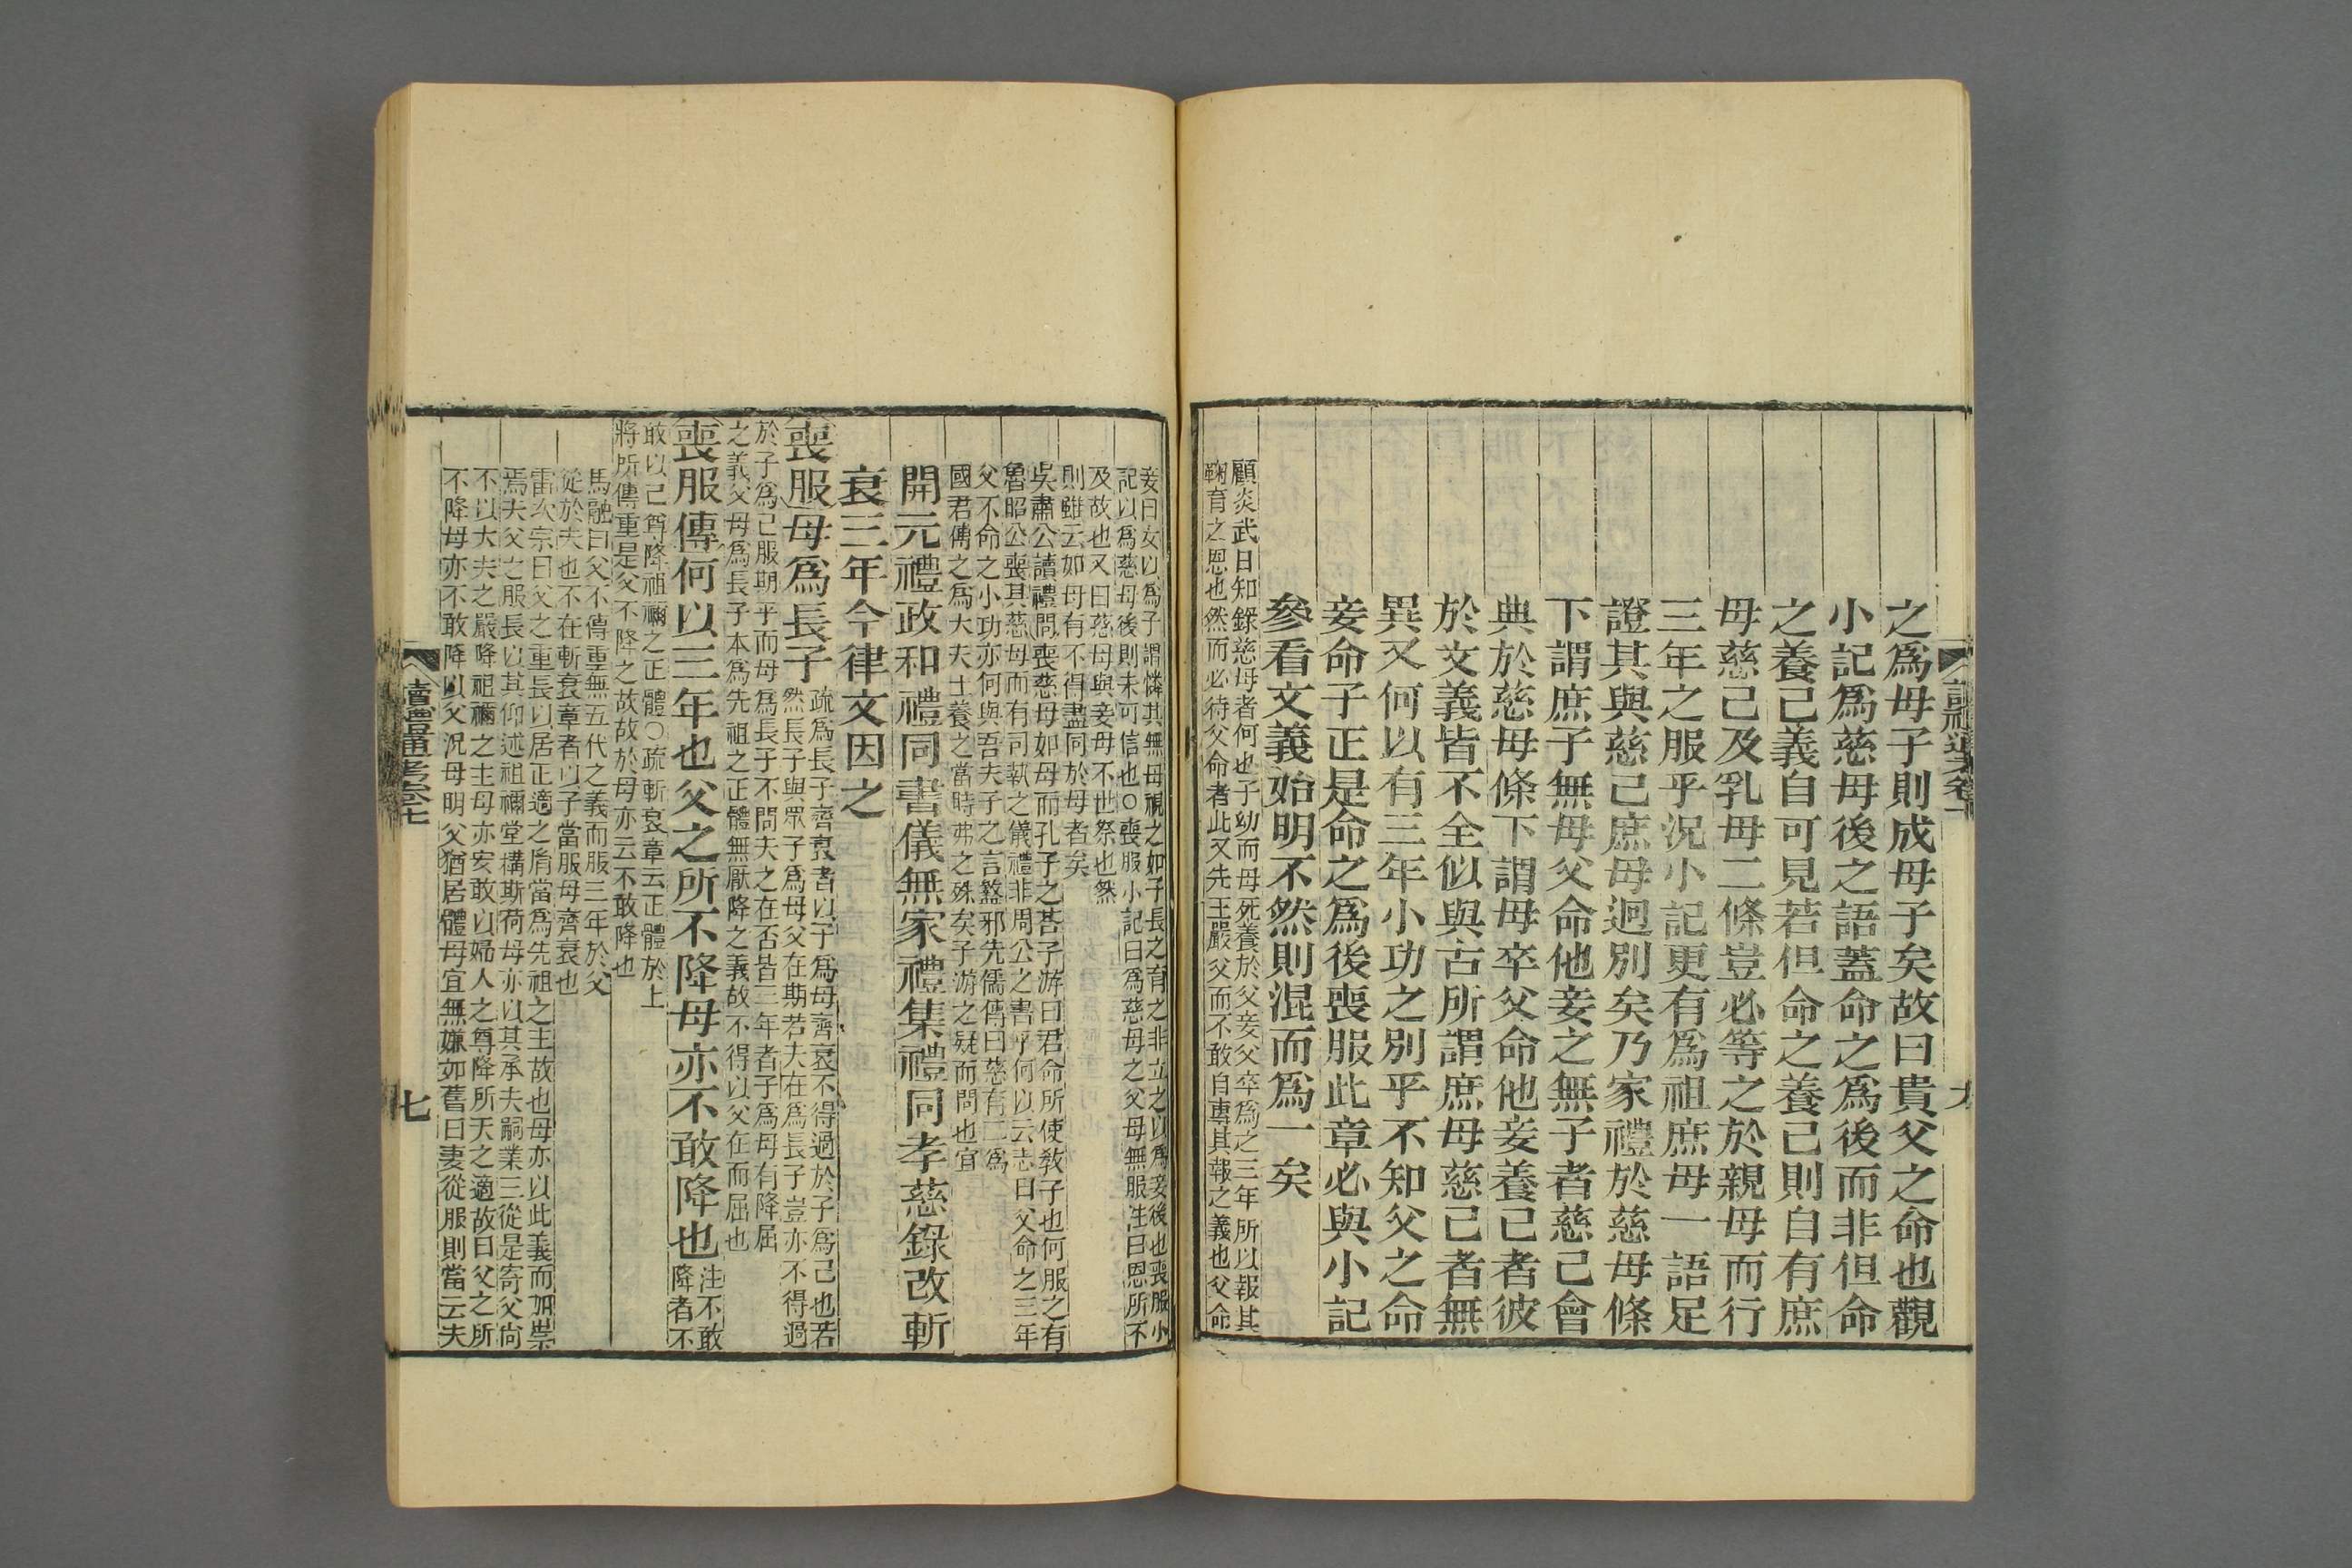 之爲母子則成母子矣故曰貴父之命也觀
小記爲慈母後之語蓋命之爲後而非但命
之養己義自可見若但命之養己則自有庶
母慈己及乳母二條豈必等之於親母而行
三年之服乎況小記更有爲祖庶母一語足
證其與慈己庶母迥別矣乃家禮於慈母條
下謂庶子無母父命他妾之無子者慈己會
典於慈母條下謂母卒父命他妾養己者彼
於文義皆不全似與古所謂庶母慈己者無
異又何以有三年小功之別乎不知父之命
妾命子正是命之爲後喪服此章必與小記
參看文義始明不然則混而爲一矣
顧炎武日知錄慈母者何也子幼而母死養於父妾父卒爲之三年所以報其
鞠育之恩也然而必待父命者此又先王嚴父而不敢自專其報之義也父命
妾曰女以爲子謂憐其無母視之如子長之育之非立之以爲妾後也喪服小
記以爲慈母後則未可信也○喪服小記曰爲慈母之父母無服注曰恩所不
及故也又曰慈母與妾母不世祭也然
則雖云如母有不得盡同於母者矣
吳肅公讀禮問喪慈母如母而孔子之答子游曰君命所使敎子也何服之有
魯昭公喪其慈母而有司執之儀禮非周公之書乎何以云志曰父命之三年
父不命之小功亦何與吾夫子之言盭邪先儒傳曰慈有二爲
國君傳之爲大夫士養之當時弗之殊矣子游之疑而問也宜
開元禮政和禮同書儀無家禮集禮同孝慈錄改斬
衰三年今律文因之
喪服母爲長子
疏爲長子齊衰者以子爲母齊衰不得過於子爲己也若
然長子與眾子爲母父在期若夫在爲長子豈亦不得過
於子爲己服期乎而母爲長子不問夫之在否皆三年者子爲母有降屈
之義父母爲長子本爲先祖之正體無厭降之義故不得以父在而屈也
喪服傳何以三年也父之所不降母亦不敢降也
注不敢
降者不
敢以己尊降祖禰之正體○疏斬衰章云正體於上
將所傳重是父不降之故故於母亦云不敢降也
馬融曰父不傳重無五代之義而服三年於父
從於夫也不在斬衰章者以子當服母齊衰也
雷次宗曰父之重長以居正適之胤當爲先祖之主故也母亦以此義而加崇
焉夫父之服長以其仰述祖禰堂構斯荷母亦以其承夫嗣業三從是寄父尙
不以大夫之嚴降祖禰之主母亦安敢以婦人之尊降所天之適故曰父之所
不降母亦不敢降以父況母明父猶居體母宜無嫌如舊曰妻從服則當云夫
讀禮通考卷七
七